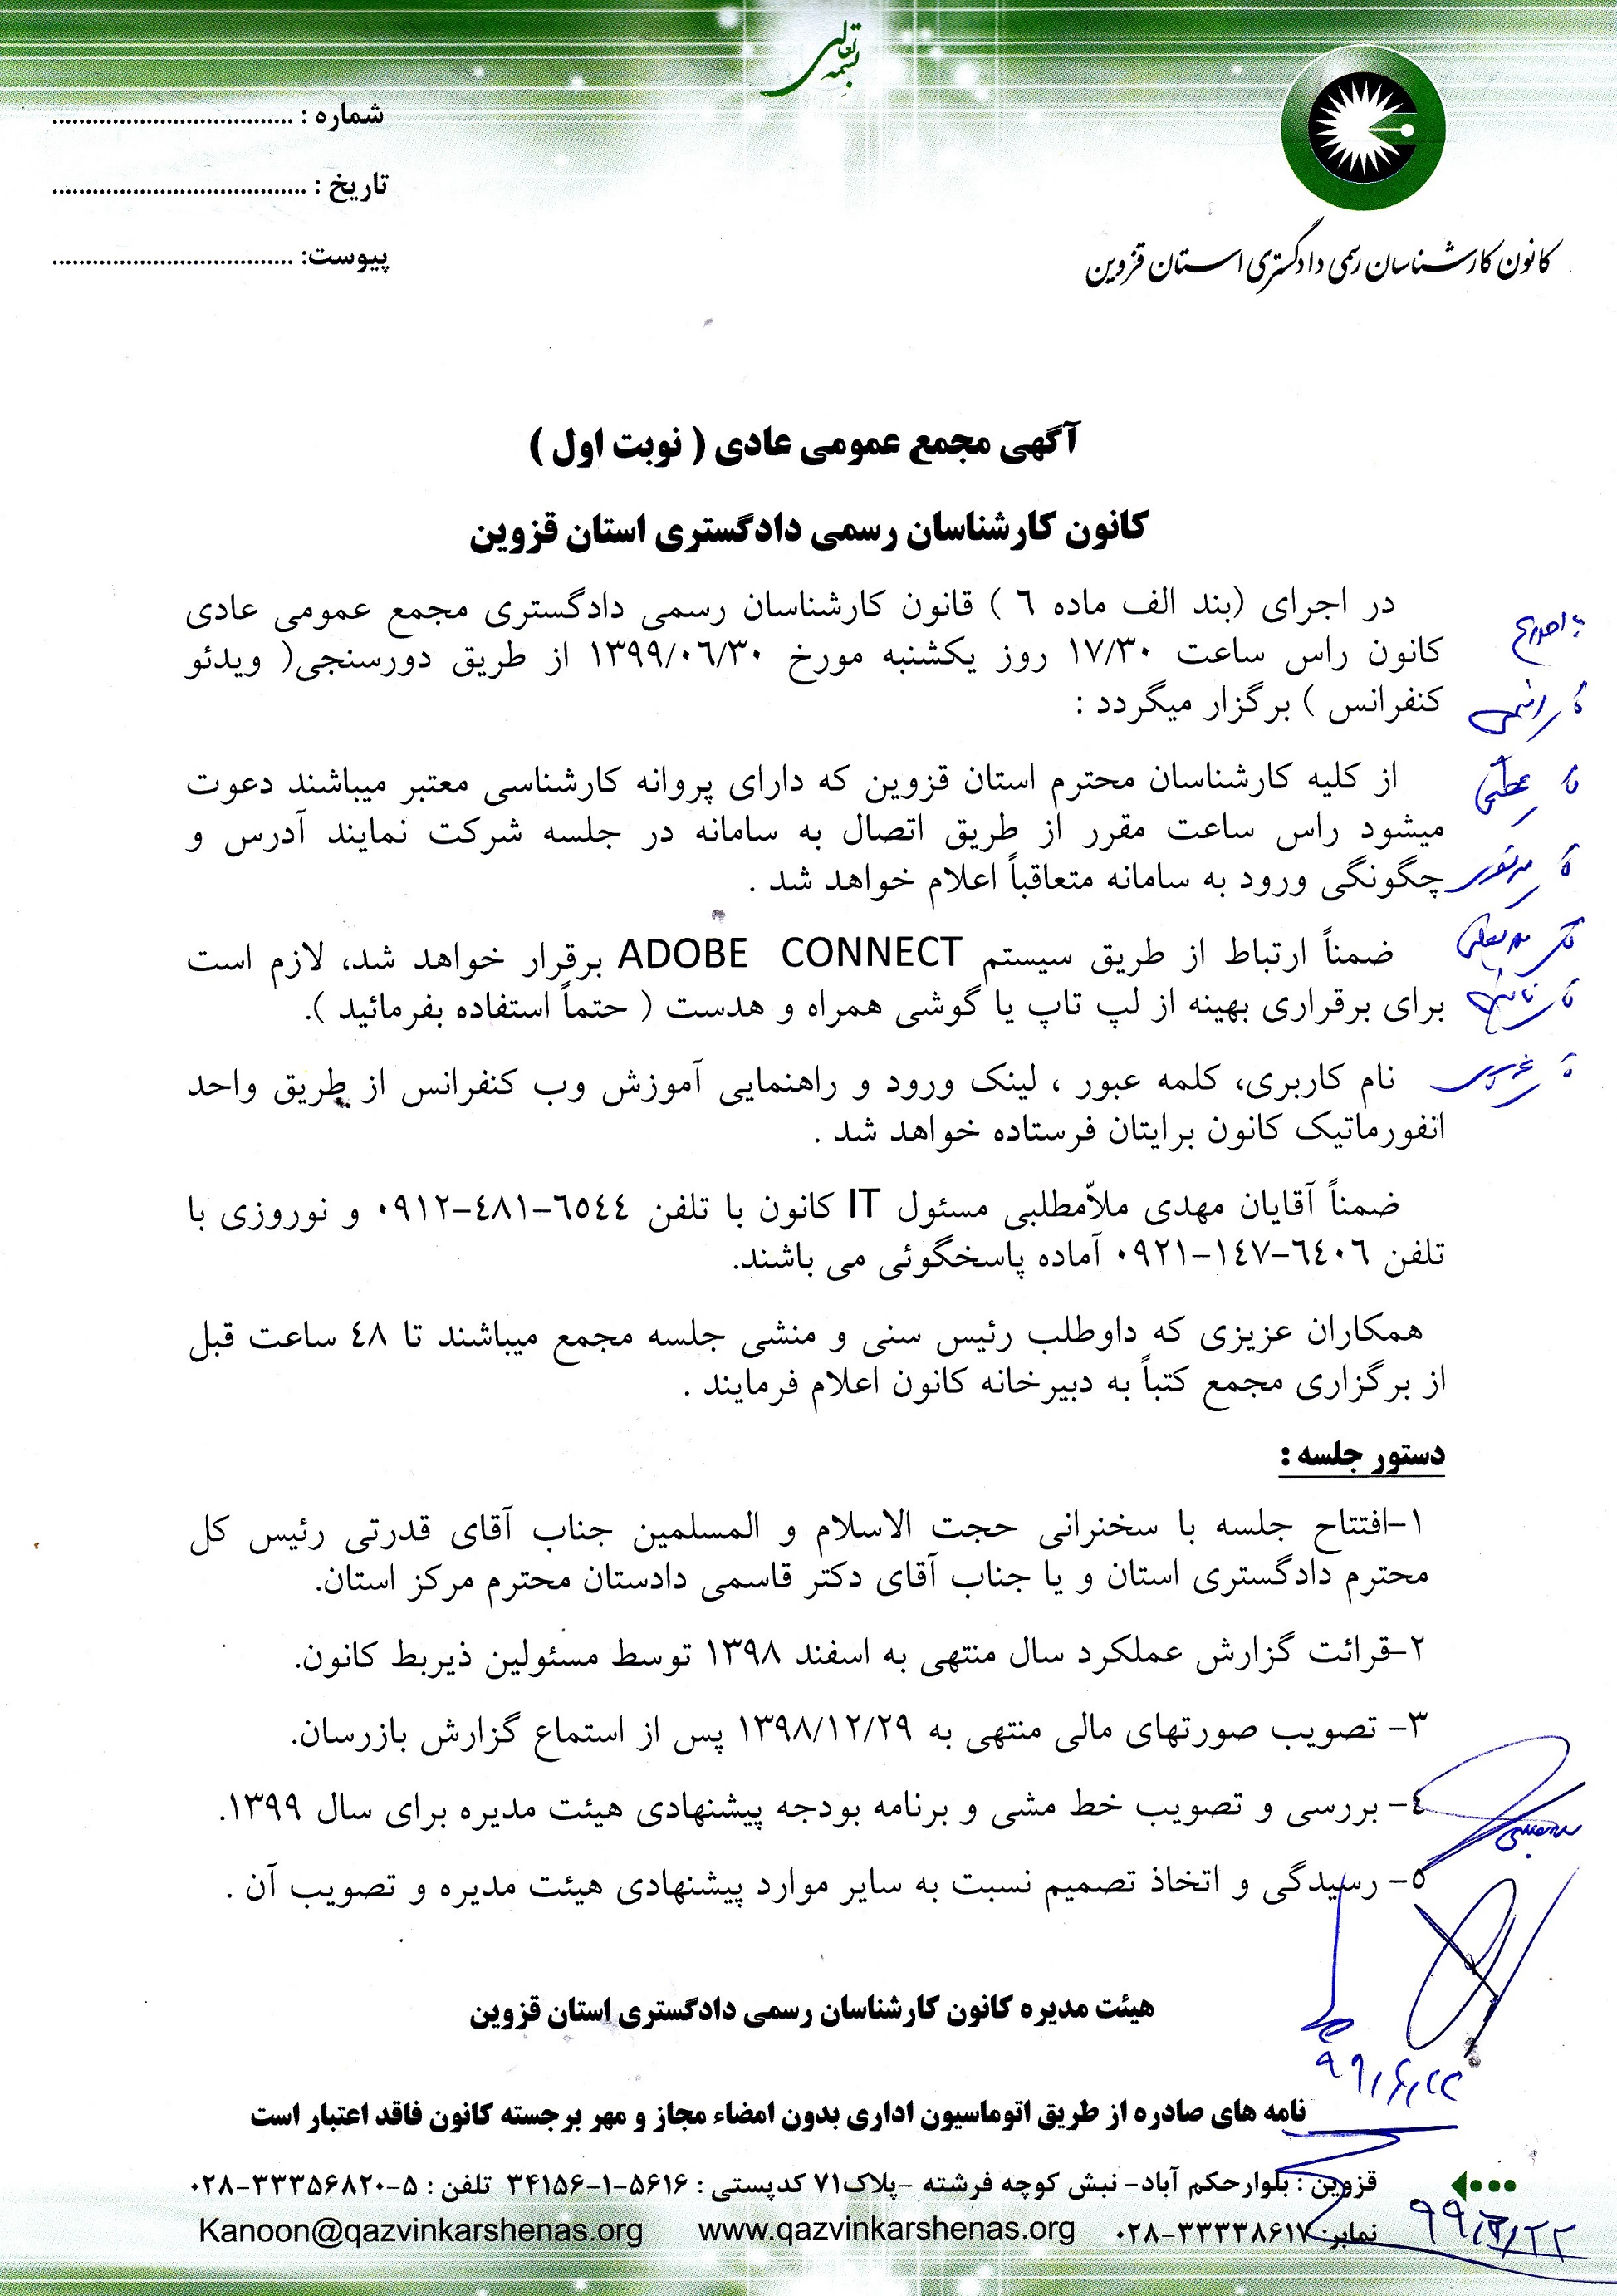 بسمه تعالی
شماره : ....................................
تاریخ : ......................................
پیوست: ....................................
کانون کارشناسان رسمی دادگستری استان قزوین
آگهی مجمع عمومی عادی ( نوبت اول )
کانون کارشناسان رسمی دادگستری استان قزوین
در اجرای (بند الف ماده ٦ ) قانون کارشناسان رسمی دادگستری مجمع عمومی عادی
کانون راس ساعت ١٧/٣٠ روز یکشنبه مورخ ١٣٩٩/٠٦/٣٠ از طریق دورسنجی( ویدئو
کنفرانس ) برگزار میگردد :
از کلیه کارشناسان محترم استان قزوین که دارای پروانه کارشناسی معتبر میباشند دعوت
میشود راس ساعت مقرر از طریق اتصال به سامانه در جلسه شرکت نمایند آدرس و
چگونگی ورود به سامانه متعاقباً اعلام خواهد شد .
ضمناً ارتباط از طریق سیستم ADOBE CONNECT برقرار خواهد شد، لازم است
برای برقراری بهینه از لپ تاپ یا گوشی همراه و هدست ( حتماً استفاده بفرمائید ).
نام کاربری، کلمه عبور ، لینک ورود و راهنمایی آموزش وب کنفرانس از طریق واحد
انفورماتیک کانون برایتان فرستاده خواهد شد .
ضمناً آقایان مهدی ملاّمطلبی مسئول IT کانون با تلفن ٦٥٤٤-٤٨١-٠٩١٢ و نوروزی با
تلفن ٦٤٠٦-١٤٧-٠٩٢١ آماده پاسخگوئی می باشند.
همکاران عزیزی که داوطلب رئیس سنی و منشی جلسه مجمع میباشند تا ٤٨ ساعت قبل
از برگزاری مجمع کتباً به دبیرخانه کانون اعلام فرمایند .
دستور جلسه :
١-افتتاح جلسه با سخنرانی حجت الاسلام و المسلمین جناب آقای قدرتی رئیس کل
محترم دادگستری استان و یا جناب آقای دکتر قاسمی دادستان محترم مرکز استان.
٢-قرائت گزارش عملکرد سال منتهی به اسفند ١٣٩٨ توسط مسئولین ذیربط کانون.
٣- تصویب صورتهای مالی منتهی به ١٣٩٨/١٢/٢٩ پس از استماع گزارش بازرسان.
٤- بررسی و تصویب خط مشی و برنامه بودجه پیشنهادی هیئت مدیره برای سال ١٣٩٩.
٥- رسیدگی و اتخاذ تصمیم نسبت به سایر موارد پیشنهادی هیئت مدیره و تصویب آن .
هیئت مدیره کانون کارشناسان رسمی دادگستری استان قزوین
۹۹/۶/۲۲
نامه های صادره از طریق اتوماسیون اداری بدون امضاء مجاز و مهر برجسته کانون فاقد اعتبار است
قزوین : بلوارحکم آباد- نبش کوچه فرشته -پلاک۷۱ کدپستی : ۵۶۱۶-۱-۳۴۱۵۶ تلفن : ۵-۳۳۳۵۶۸۲۰-۰۲۸
نمابر: ۳۳۳۳۸۶۱۷-۰۲۸ www.qazvinkarshenas.org Kanoon@qazvinkarshenas.org